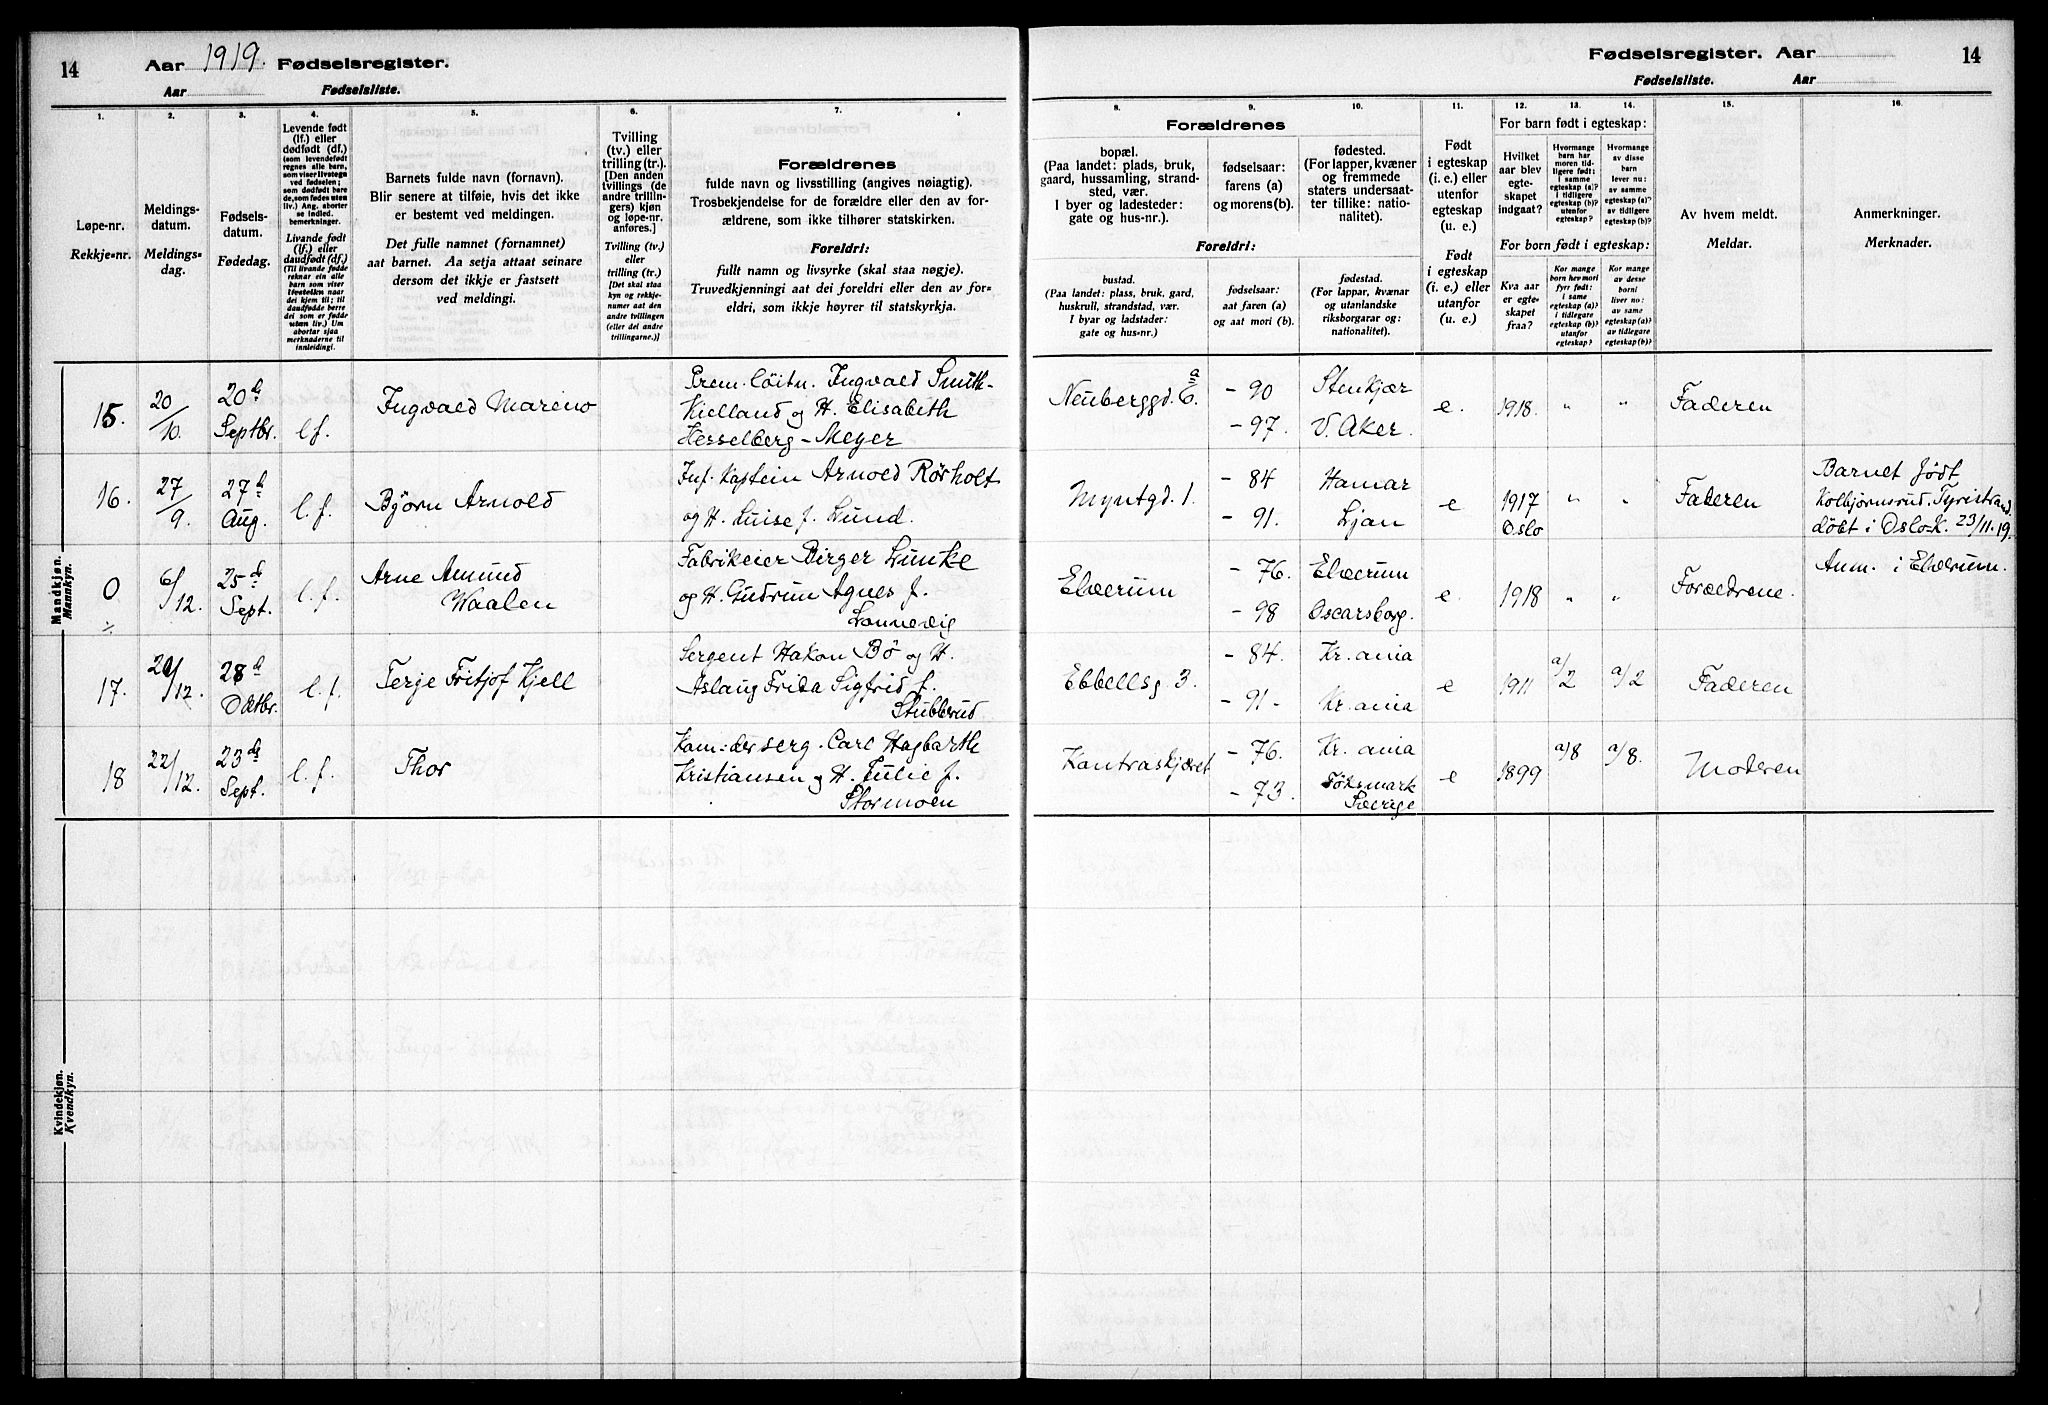 14 Aar 1919. Fødselsregister.
Aar Fødselsliste.
Fødselsregister. Aar 14
Fødselsliste. Aar
1. 2. 3. 4. 5. 6. 7.
Løpe-nr.
Rekkje=nr.
Meldings-
datum.
Meldings=
dag.
Fødsels-
datum.
Fødedag.
Levende født
(lf.) eller
dødfødt (df.)
Livande født
(lf.) eller
daudfødt (df.)
Barnets fulde navn (fornavn).
Blir senere at tilføie, hvis det ikke
er bestemt ved meldingen.
Det fulle namnet (fornamnet)
aat barnet. Aa setja attaat seinare
dersom det ikkje er fastsett
ved meldingi.
Tvilling
(tv.) eller
trilling (tr.).
[Den anden
tvillings (de
andre trillin-
gers) kjøn
og løpe-nr.
anføres.]
Tvilling (tv.)
eller
trilling (tr.)
[Det skal staa
kyn og rekkje-
numer aat den
andre tvillingen
(eller dei andre
trillingarne.)]
Forældrenes
fulde navn og livsstilling (angives nøiagtig).
Trosbekjendelse for de forældre eller den av for-
ældrene, som ikke tilhører statskirken.
Foreldri:
fullt namn og livsyrke (skal staa nøgje).
Truvedkjenningi aat dei foreldri eller den av for=
eldri, som ikkje høyrer til statskyrkja.
8. 9. 10. 11. 12. 13. 14. 15. 16.
Forældrenes
bopæl.
(Paa landet: plads, bruk,
gaard, hussamling, strand-
sted, vær.
I byer og ladesteder:
gate og hus-nr.)
fødselsaar:
farens (a)
og morens(b).
fødested.
(For lapper, kvæner
og fremmede
staters undersaat-
ter tillike: natio-
nalitet).
Foreldri:
bustad.
(Paa landet: plass, bruk, gard,
huskrull, strandstad, vær.
I byar og ladstader:
gate og hus-nr.)
fødselsaar:
aat faren (a)
og aat mori (b).
fødestad.
(For lappar, kvænar
og utanlandske
riksborgarar og:
nationalitet).
Født
i egteskap
(i. e.) eller
utenfor
egteskap
(u. e.)
Født
i egteskap
(i. e.) eller
utanfor
egteskap
(u. e.)
For barn født i egteskap:
Hvilket
aar blev
egte-
skapet
indgaat?
Hvormange
barn har
moren tid-
ligere født:
i samme
egteskap (a)?
i tidligere
egteskap (b)?
utenfor
egteskap?
Hvormange
av disse
barn
lever nu:
av samme
egteskap (a)?
av tidligere
egteskap (b)?
For born født i egteskap:
Kva aar
er egte-
skapet
fraa?
Kor mange
born hev mori
fyrr født:
i same
egteskap (a)?
i tidlegare
egteskap (b)?
utanfor
egteskap?
Kor mange
av desse
borni
liver no:
av same
egteskap (a)?
av tidlegare
egteskap (b)?
Av hvem meldt.
Meldar.
Anmerkninger.
Merknader.
Mandkjøn.
Mannkyn.
15. 20/10. 20d Septbr. l f. Ingvald Marino
Prem. löitn. Ingvald Smith-
Kielland og H. Elisabeth
Hesselberg-Meyer
Neuberggd. 6a – 90 Stenkjær
– 97. V. Aker. e. 1918. " " Faderen
16. 27/9. 27d Aug. l. f. Bjørn Arnold
Inf. Kaptein Arnold Rørholt
og H. Luise f. Lund.
Myntgd. 1. – 84 Hamar
– 91. Ljan e 1917 Oslo " " Faderen
Barnet født
Kolbjørnsrud. Tyristrand.
døbt i Oslo K. 23/11.19.
0 6/12. 25d Sept. l. f. Arne Amund
Waalen
Fabrikeier Birger Lunke
og H. Gudrun Agnes f.
Lannevig
Elverum – 76. Elverum
– 98 Oscarsborg. e. 1918 " " Forældrene.
Anm. i Elverum.
17. 20/12. 28d Oktbr. l. f. Terje Fritjof Kjell
Sergent Hakon Bö og H.
Aslaug Frida Sigfrid f.
Stubberud
Ebbellsg 3. – 84. Kr. ania
– 91 – Kr. ania e 1911 a/2 a/2 Faderen
18 22/12. 23de Sept. l. f. Thor
Kom:dersерg. Carl Hagbarth
Kristiansen og H. Julie f.
Stormoen
Kontraskjæret – 76. Kr. ania
– 73. Föksmark
Sverige e 1899 a/8 a/8. Moderen
Kvindekjøn.
Kvendkyn.